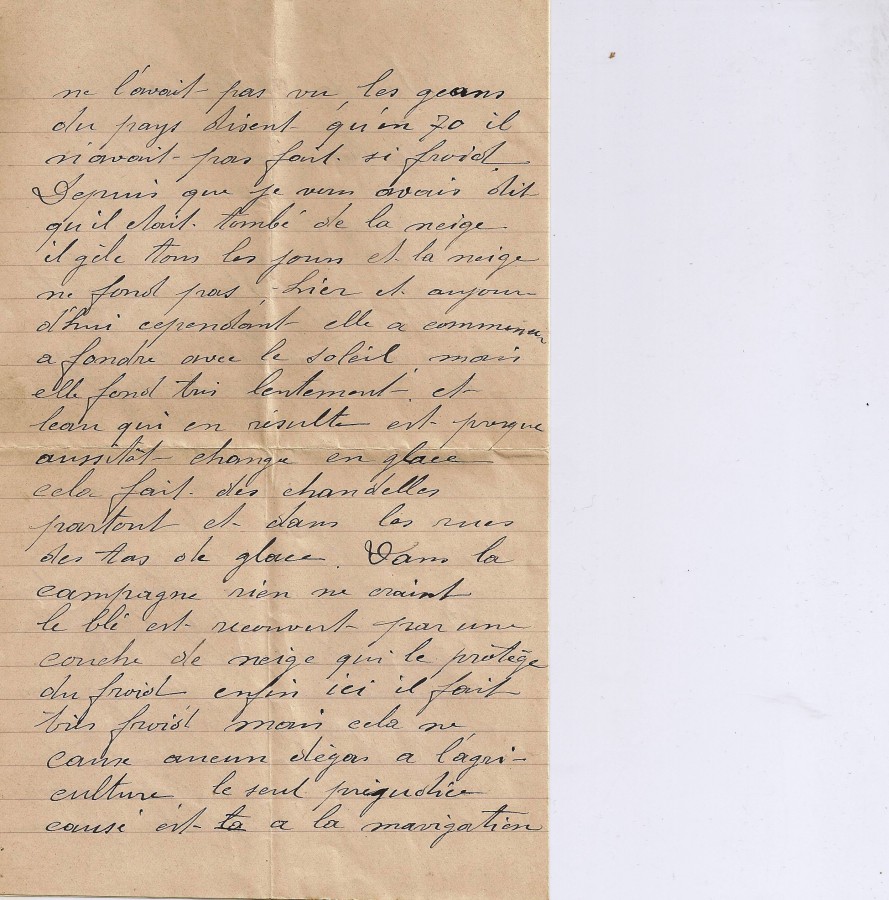 ne l'avait pas vu les geans
du pays disent qu'en 70 il
n'avait pas fait si froid
Depuis que je vous avais dit
qu'il etait tombé de la neige
il gèle tous les jours et la neige
ne fond pas, hier et aujour-
d'hui cependant elle a commencer
a fondre avec le soleil mais
elle fond très lentement et
leau qui en résulte est presque
aussitôt change en glace
cela fait des chandelles
partout et dans les rues
des tas de glace. Dans la
campagne rien ne craint
le blé est recouvert par une
couche de neige qui le protège
du froid enfin ici il fait
très froid mais cela ne
cause aucun dégas a l'agri-
culture le seul préjudice
causé est a la navigation